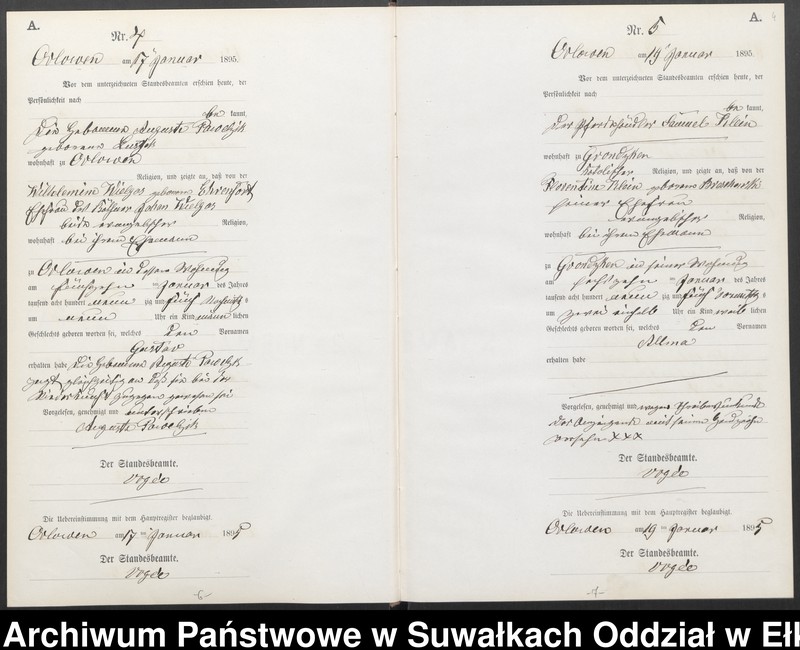 A.
Nr. 4
Orlowen am 17 Januar 1895.
Vor dem unterzeichneten Standesbeamten erschien heute, der
Persönlichkeit nach
be kannt,
die Hebamme Auguste
geborene
wohnhaft zu Orlowen
Religion, und zeigte an, daß von der
Wilhelmine Wielgos geborene Ehrenfordt
Ehefrau des Käthner Johann Wielgos
beide evangelischer Religion,
wohnhaft bei ihrem Ehemann
zu Orlowen in dessen Wohnung
am fünfzehn ten Januar des Jahres
tausend acht hundert neun zig und fünf
um neun Uhr ein Kind männ lichen
Geschlechts geboren worden sei, welches den Vornamen
Gustav
erhalten habe die Hebamme Auguste
zeigt gleichzeitig an daß sie bei der
Niederkunft zugegen gewesen sei
Vorgelesen, genehmigt und unterschrieben
Auguste
Der Standesbeamte.
Vogée
Die Uebereinstimmung mit dem Hauptregister beglaubigt.
Orlowen am 17 ten Januar 1895
Der Standesbeamte.
Vogée
-6-
A.
4
Nr. 5
Orlowen am 19 Januar 1895.
Vor dem unterzeichneten Standesbeamten erschien heute, der
Persönlichkeit nach
be kannt,
der Pferdehändler Samuel Klein
wohnhaft zu Grondzken
katolischer Religion, und zeigte an, daß von der
Klein geborene
seiner Ehefrau
evangelischer Religion,
wohnhaft bei ihrem Ehemann
zu Grondzken in seiner Wohnung
am sechszehn ten Januar des Jahres
tausend acht hundert neun zig und fünf Vormittags
um zwei einhalb Uhr ein Kind weib lichen
Geschlechts geboren worden sei, welches den Vornamen
erhalten habe
Vorgelesen, genehmigt und wegen Schreibensunkunde
des Anzeigenden mit seinem Handzeichen
versehn XXX
Der Standesbeamte.
Vogée
Die Uebereinstimmung mit dem Hauptregister beglaubigt.
Orlowen am 19 ten Januar 1895
Der Standesbeamte.
Vogée
-7-
Archiwum Państwowe w Suwałkach Oddział w Ełk